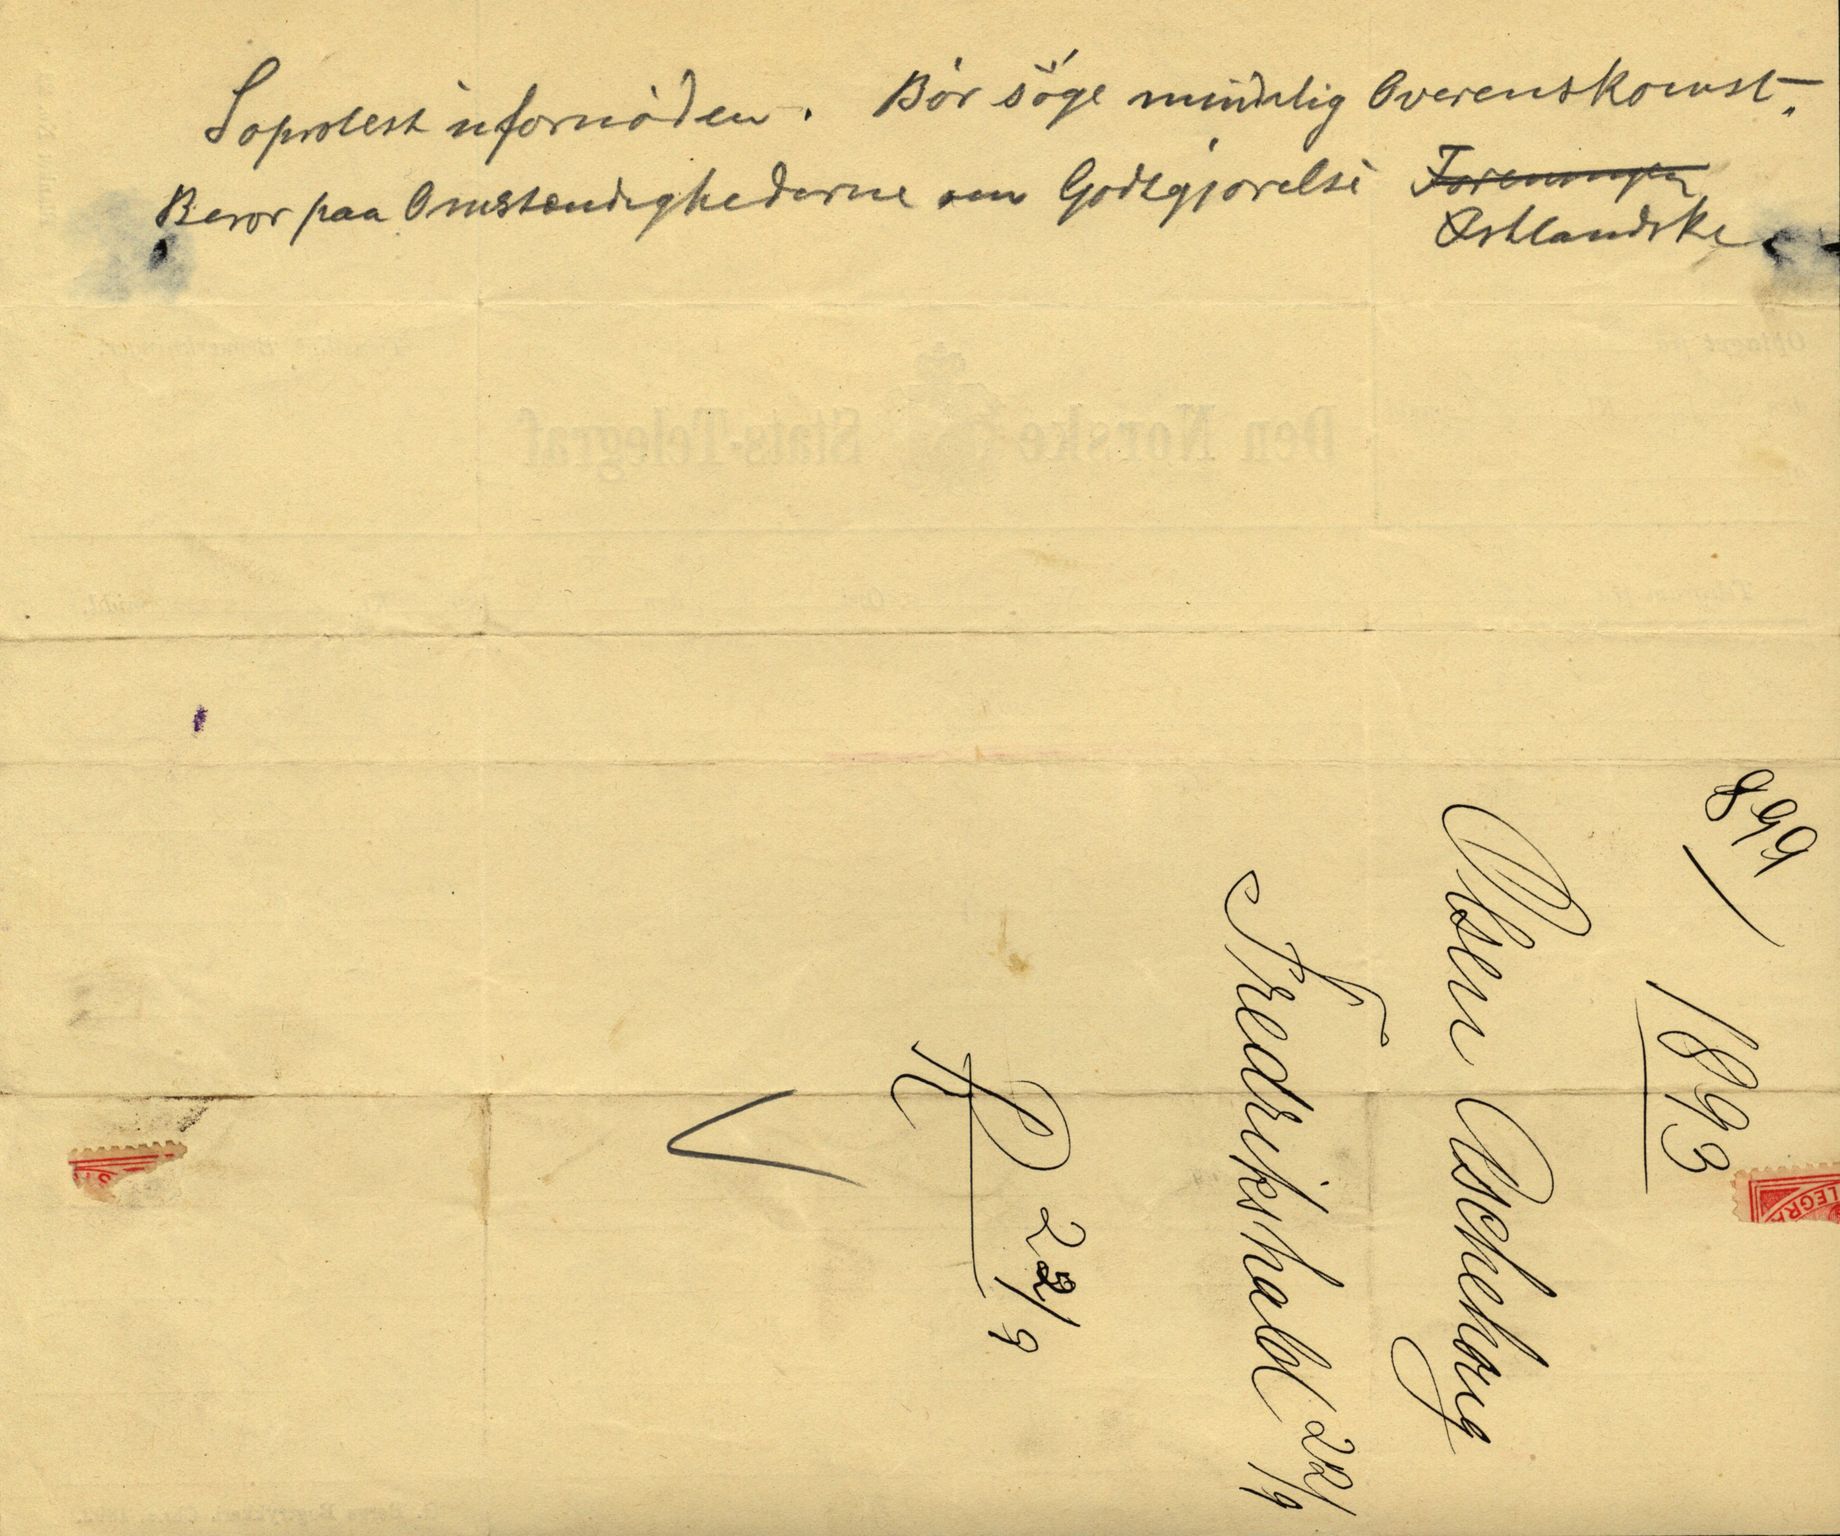 Søprotest ufornöden. Bör söge mindelig Overenskomst.
Beror paa Omstændighederne om Godtgjörelse ~~Foreningen~~
Østlandske
Den Norske Stats-Telegraf
899
1893
Olsen Aschehoug
Fredrikshald 22/9
R 22/9